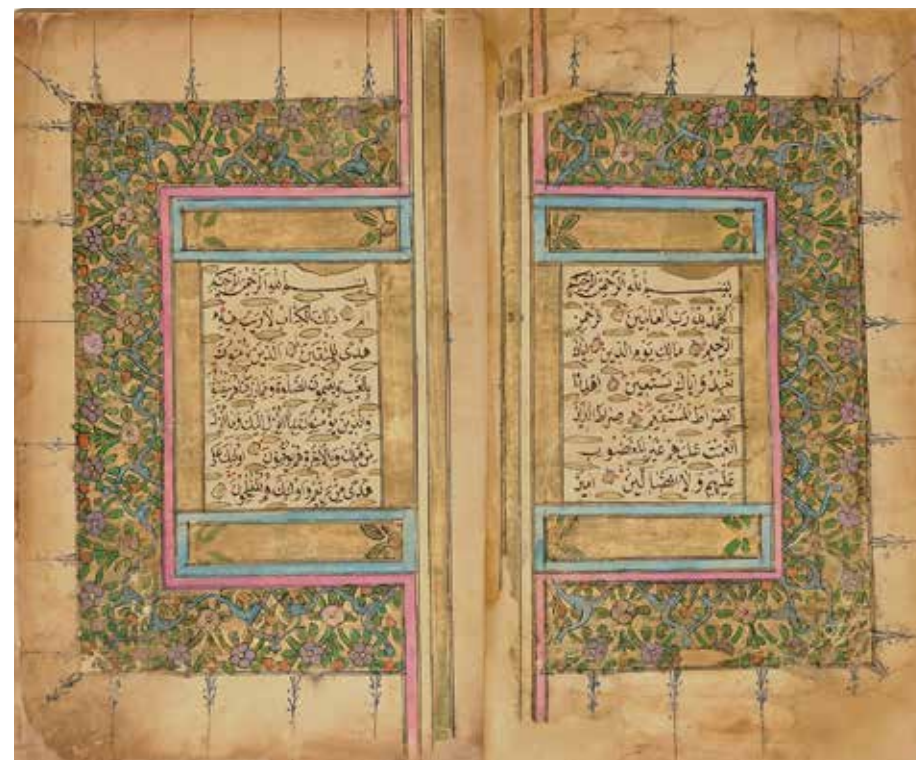 بسم الله الرحمن الرحيم
الحمد لله رب العالمين الرحمن
الرحيم مالك يوم الدين اياك
نعبد واياك نستعين اهدنا
الصراط المستقيم صراط الذين
انعمت عليهم غير المغضوب
عليهم ولا الضالين امين
بسم الله الرحمن الرحيم
الم ذلك الكتاب لا ريب فيه
هدى للمتقين الذين يؤمنون
بالغيب ويقيمون الصلوة ومما رزقناهم ينفقون
والذين يؤمنون بما انزل اليك وما انزل
من قبلك وبالاخرة هم يوقنون اولئك على
هدى من ربهم واولئك هم المفلحون